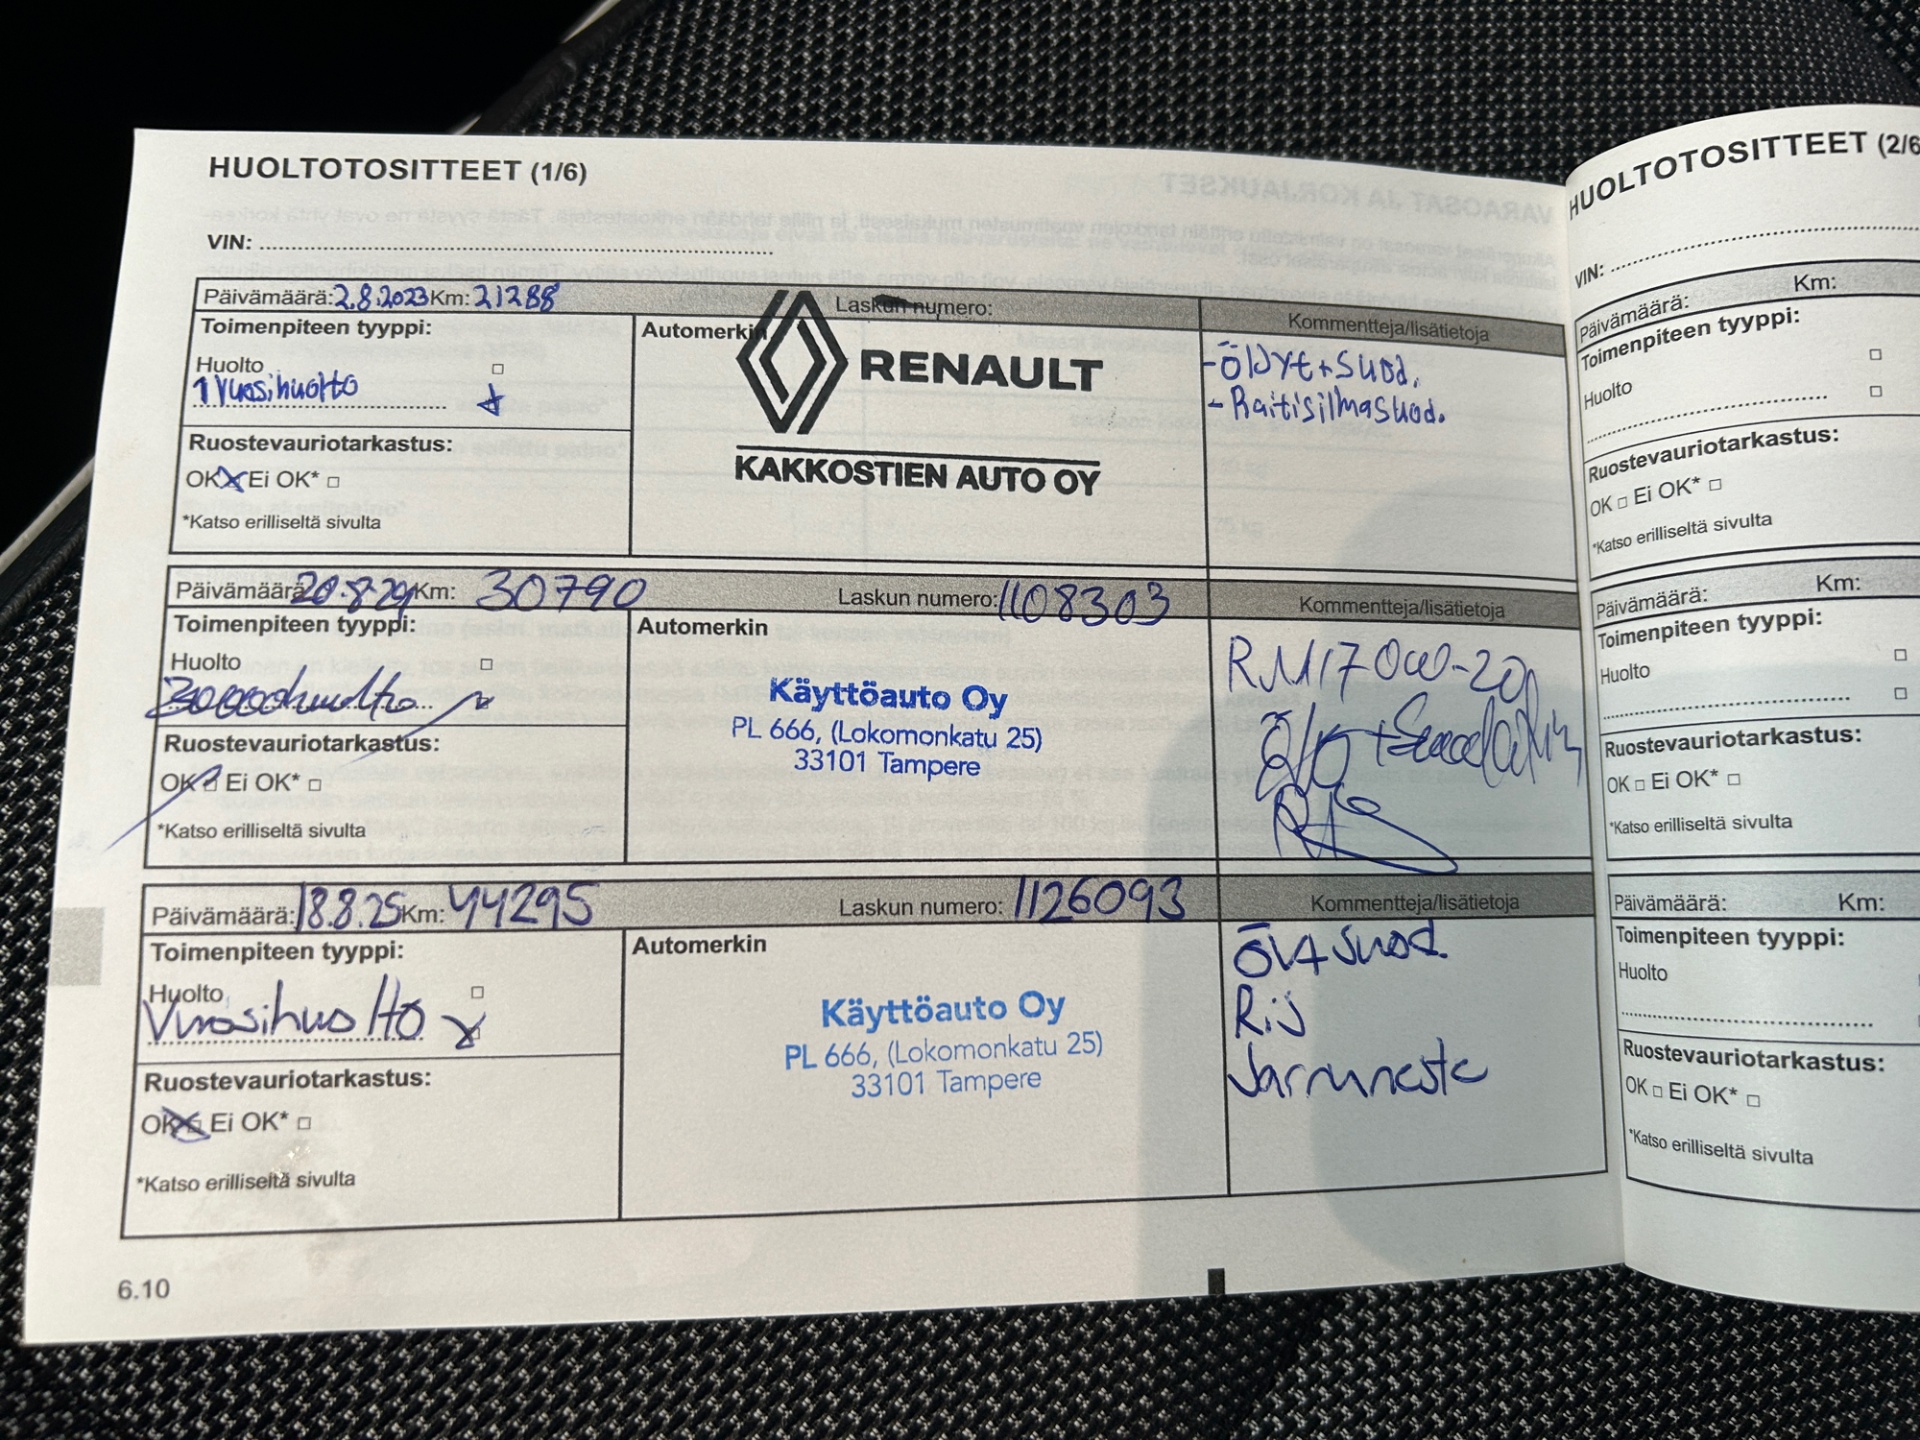 HUOLTOTOSITTEET (1/6)
VIN:
Päivämäärä: 2.8.2023 Km: 21288 Laskun numero: Kommentteja/lisätietoja
Toimenpiteen tyyppi:
Huolto
1 Vuosihuolto
Ruostevauriotarkastus:
OK Ei OK*
*Katso erilliseltä sivulta
Automerkin
RENAULT
KAKKOSTIEN AUTO OY
- Öljyt + Suod.
- Raitisilmasuod.
Päivämäärä 20.8.24 Km: 30790 Laskun numero: 1108303 Kommentteja/lisätietoja
Toimenpiteen tyyppi:
Huolto
30000huolto
Ruostevauriotarkastus:
OK Ei OK*
*Katso erilliseltä sivulta
Automerkin
Käyttöauto Oy
PL 666, (Lokomonkatu 25)
33101 Tampere
RN17 0W-20
Päivämäärä: 18.8.25 Km: 44295 Laskun numero: 1126093 Kommentteja/lisätietoja
Toimenpiteen tyyppi:
Huolto
Vuosihuolto
Ruostevauriotarkastus:
OK Ei OK*
*Katso erilliseltä sivulta
Automerkin
Käyttöauto Oy
PL 666, (Lokomonkatu 25)
33101 Tampere
suod.
Jarruneste
6.10
HUOLTOTOSITTEET (2/6
VIN:
Päivämäärä: Km:
Toimenpiteen tyyppi:
Huolto
Ruostevauriotarkastus:
OK Ei OK*
*Katso erilliseltä sivulta
Päivämäärä: Km:
Toimenpiteen tyyppi:
Huolto
Ruostevauriotarkastus:
OK Ei OK*
*Katso erilliseltä sivulta
Päivämäärä: Km:
Toimenpiteen tyyppi:
Huolto
Ruostevauriotarkastus:
OK Ei OK*
*Katso erilliseltä sivulta